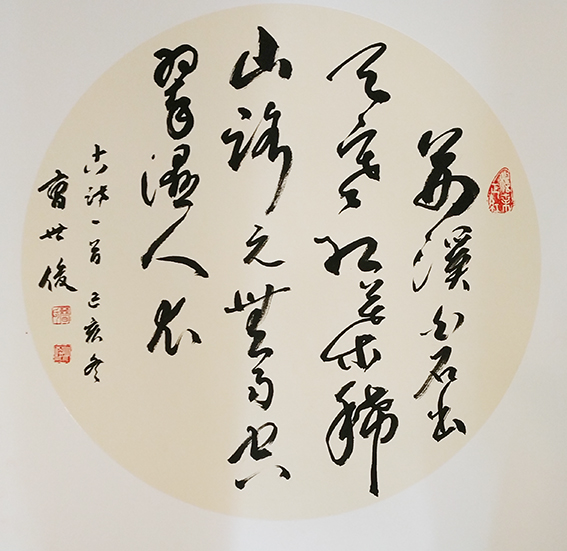 荆溪白石出
天寒红葉稀
山路元無雨空
翠湿人衣
古诗一首 己亥冬
曹世俊